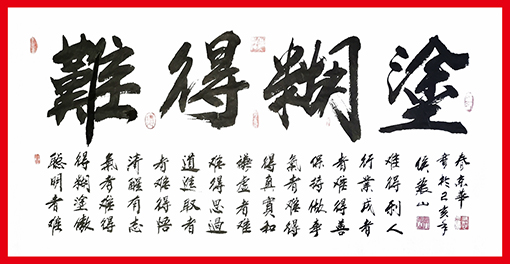 難得糊塗
聰明者難
得糊塗傲
氣者難得
清醒有志
者難得悟
道進取者
難得思過
謙虛者難
得真實和
氣者難得
保持做事
者難得善
行業成者
難得利人
京華
書於己亥年
侯燕山